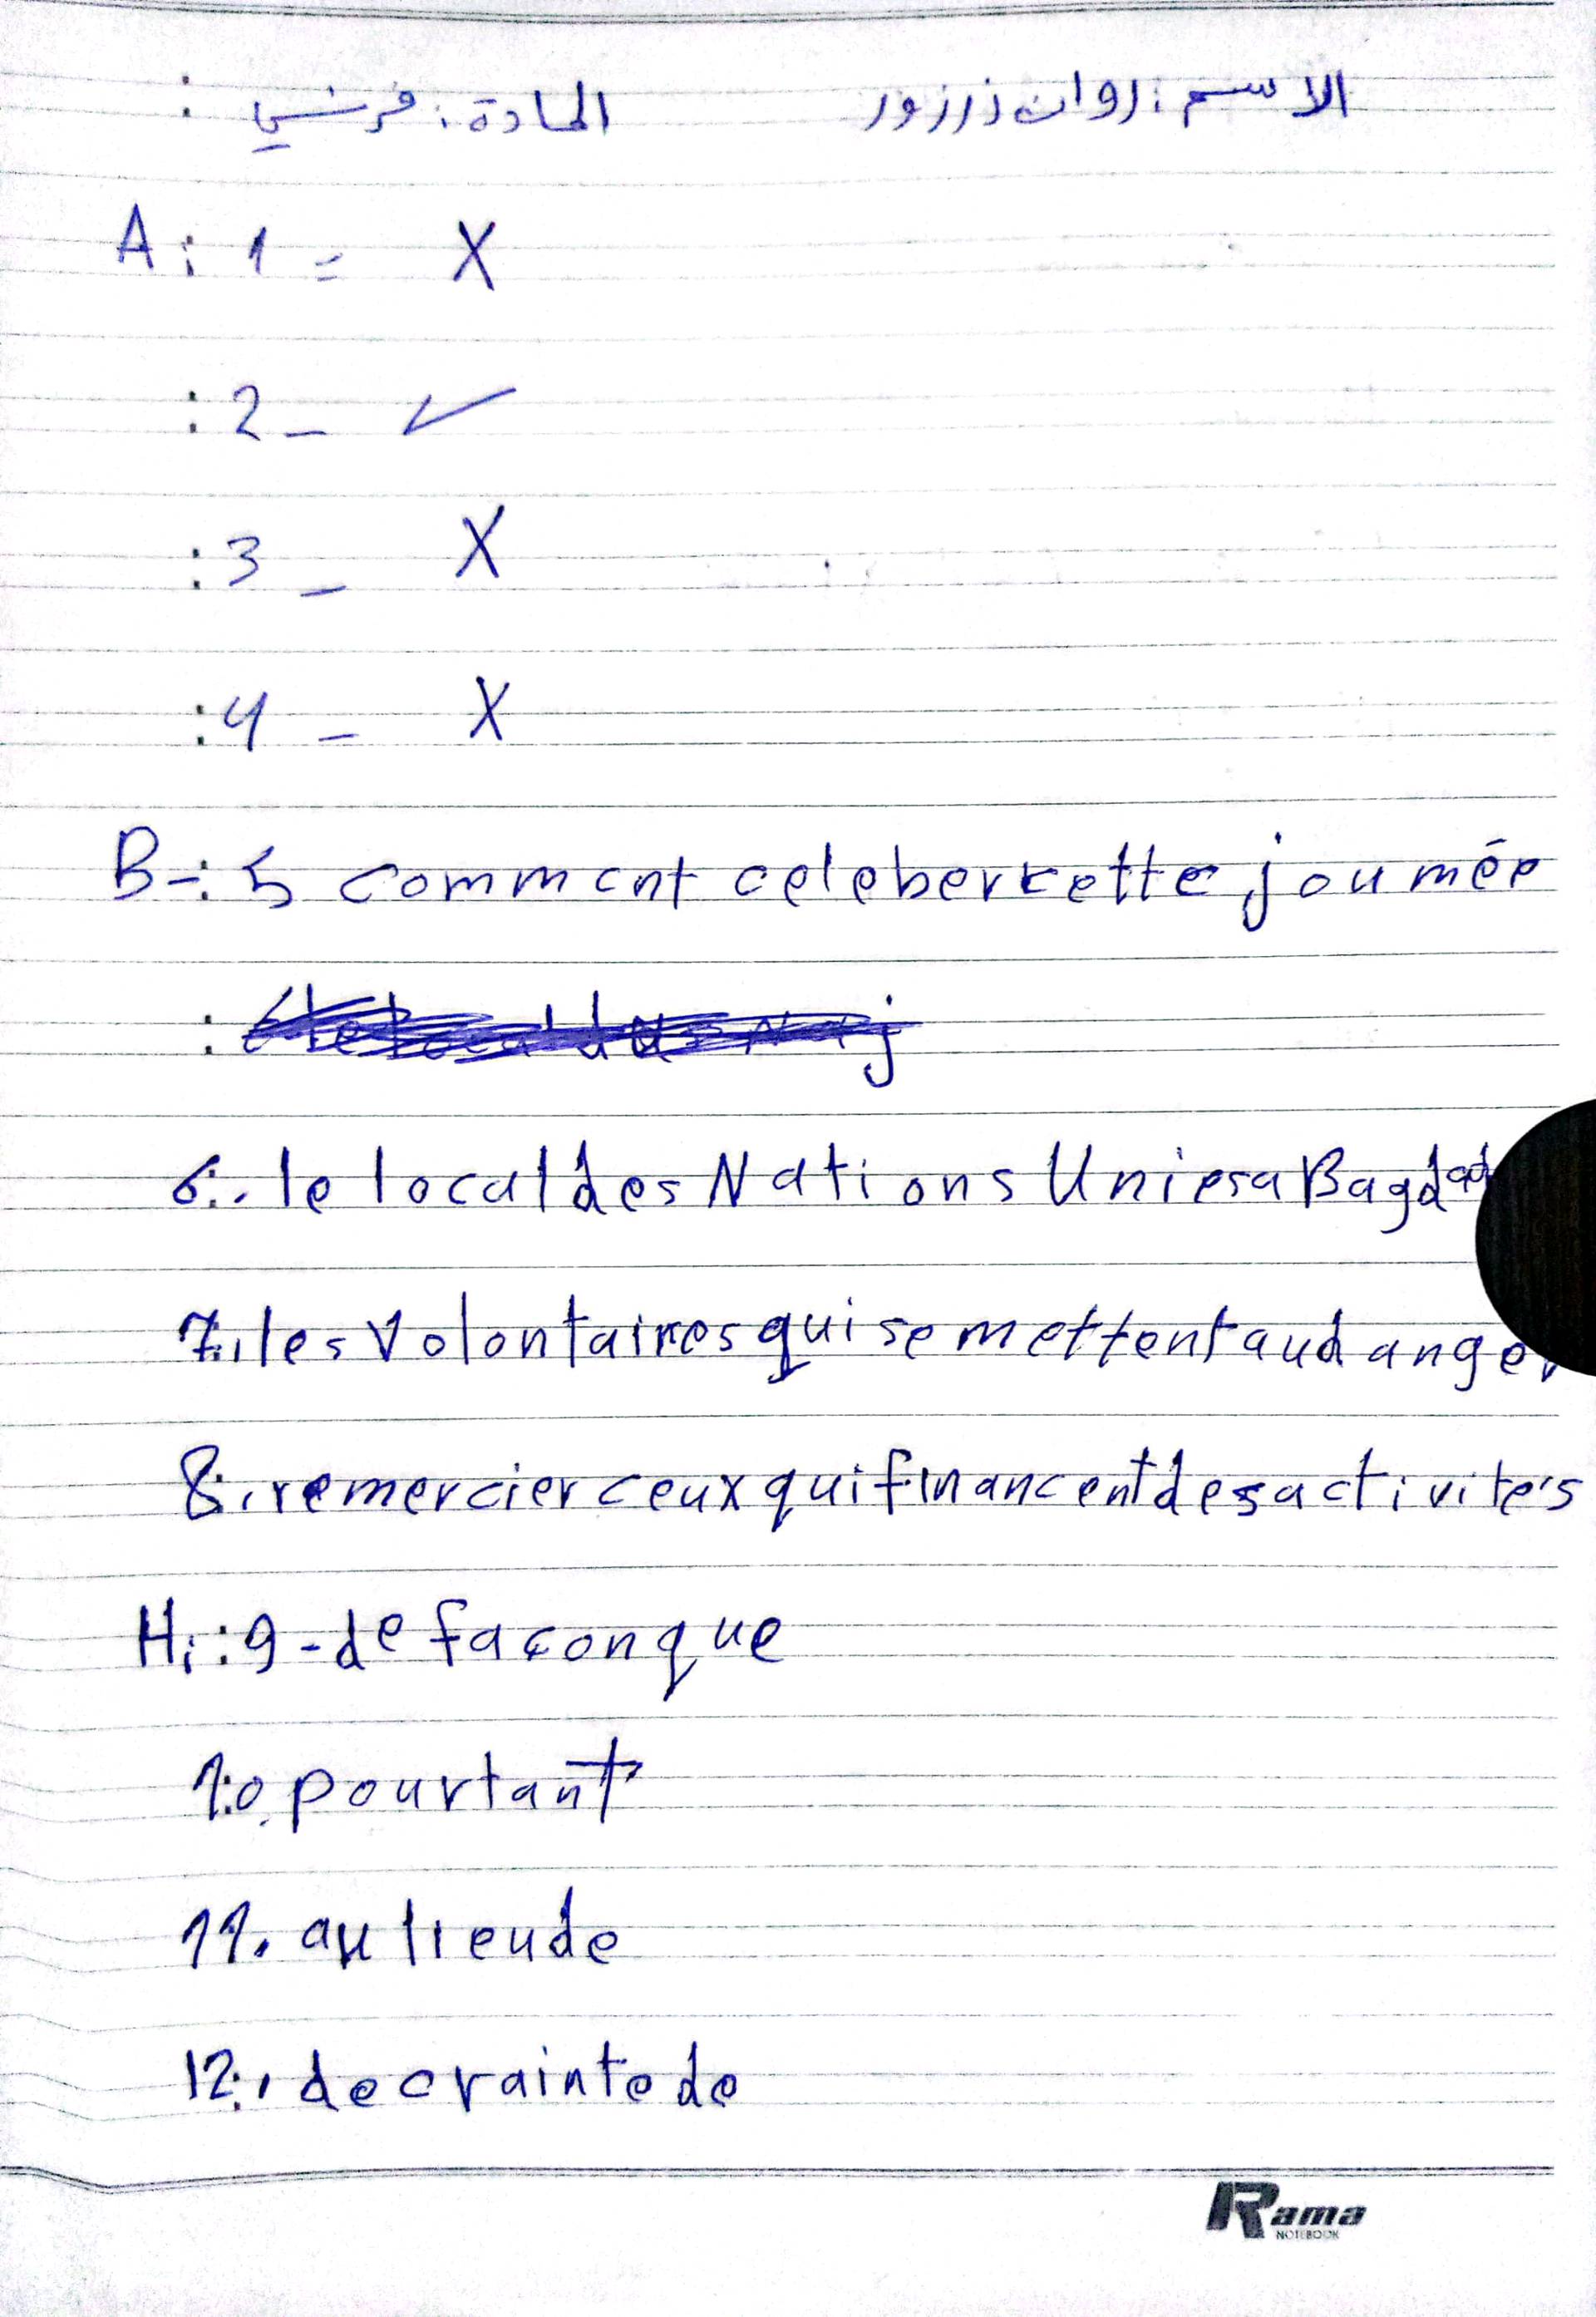 الاسم : روان زرزور المادة : فرنسي :
A : 1 = X
: 2 - ✓
: 3 - X
: 4 - X
B - : 5 commcnt celeberkette journée
6 : . le local des Nations Unies a Bagdad
7 : . les volontaires qui se mettent au danger
8 : . remercier ceux qui financent des activités
H : : 9 - de façon que
10 . pourtant
11 . au lieu de
12 : . de crainte de
Rama
NOTEBOOK